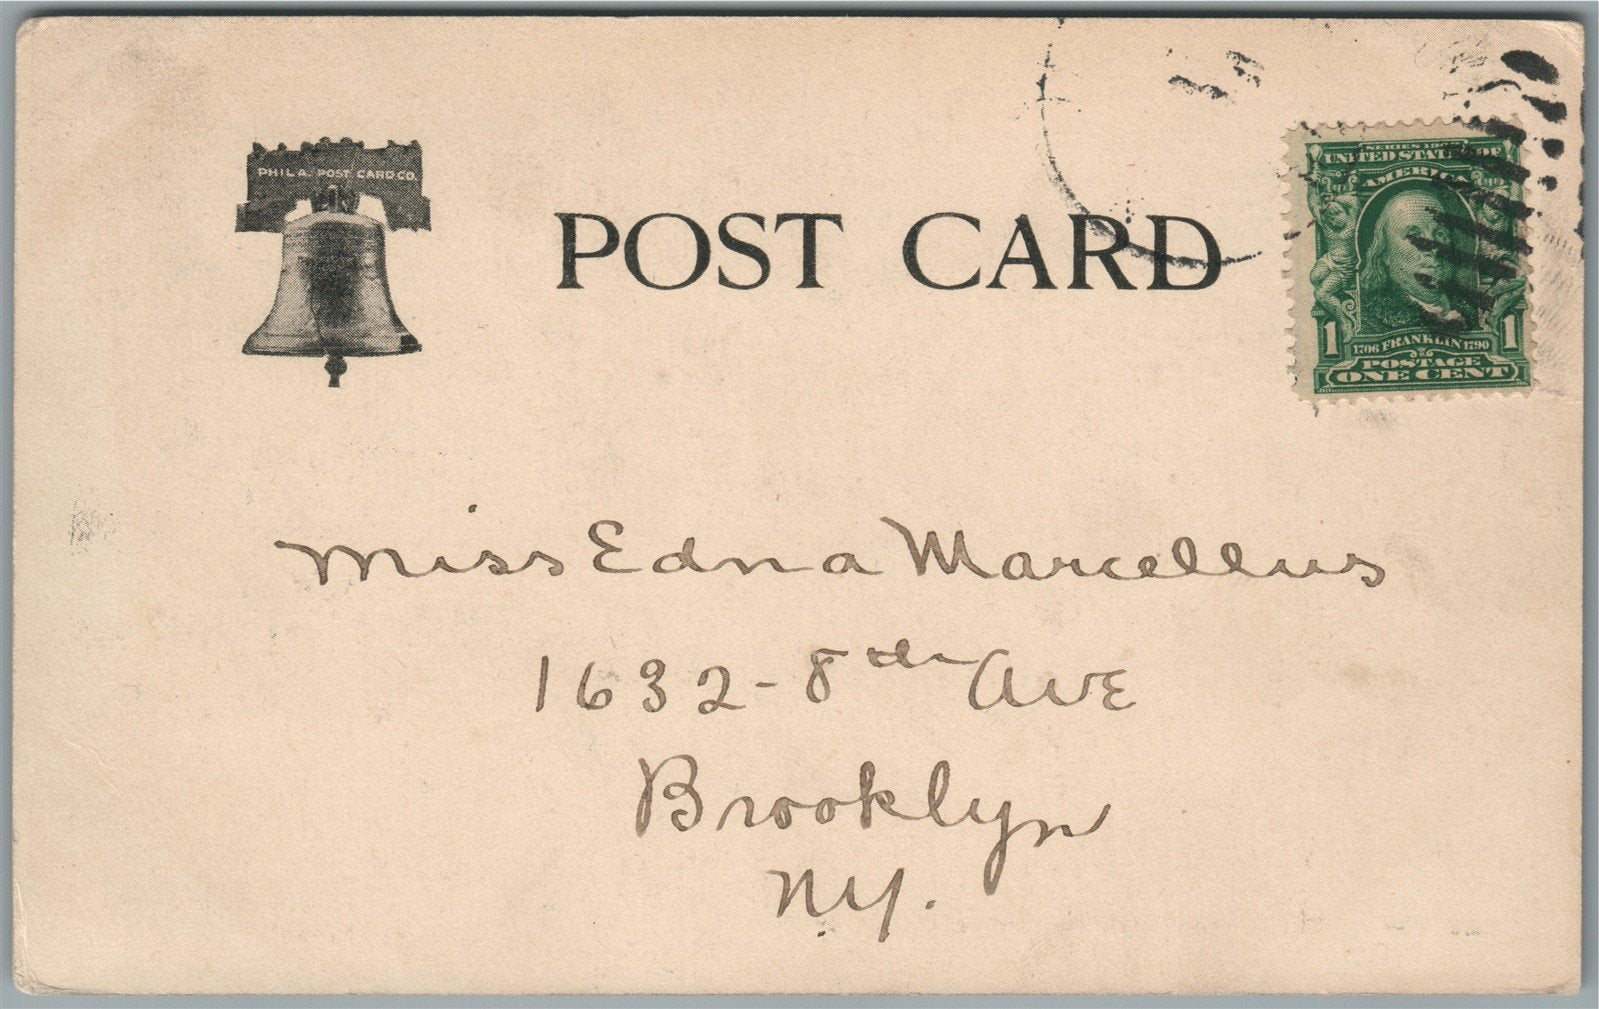 PHILA. POST CARD CO.
POST CARD
SERIES 1902
UNITED STATES OF
AMERICA
1 1706 FRANKLIN 1790 1
POSTAGE
ONE CENT
Miss Edna Marcellus
1632-8th Ave
Brooklyn
NY.